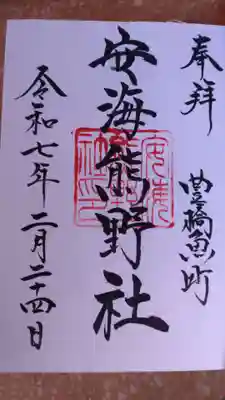 奉拝
豊橋魚町
安海熊野社
令和七年二月二十四日